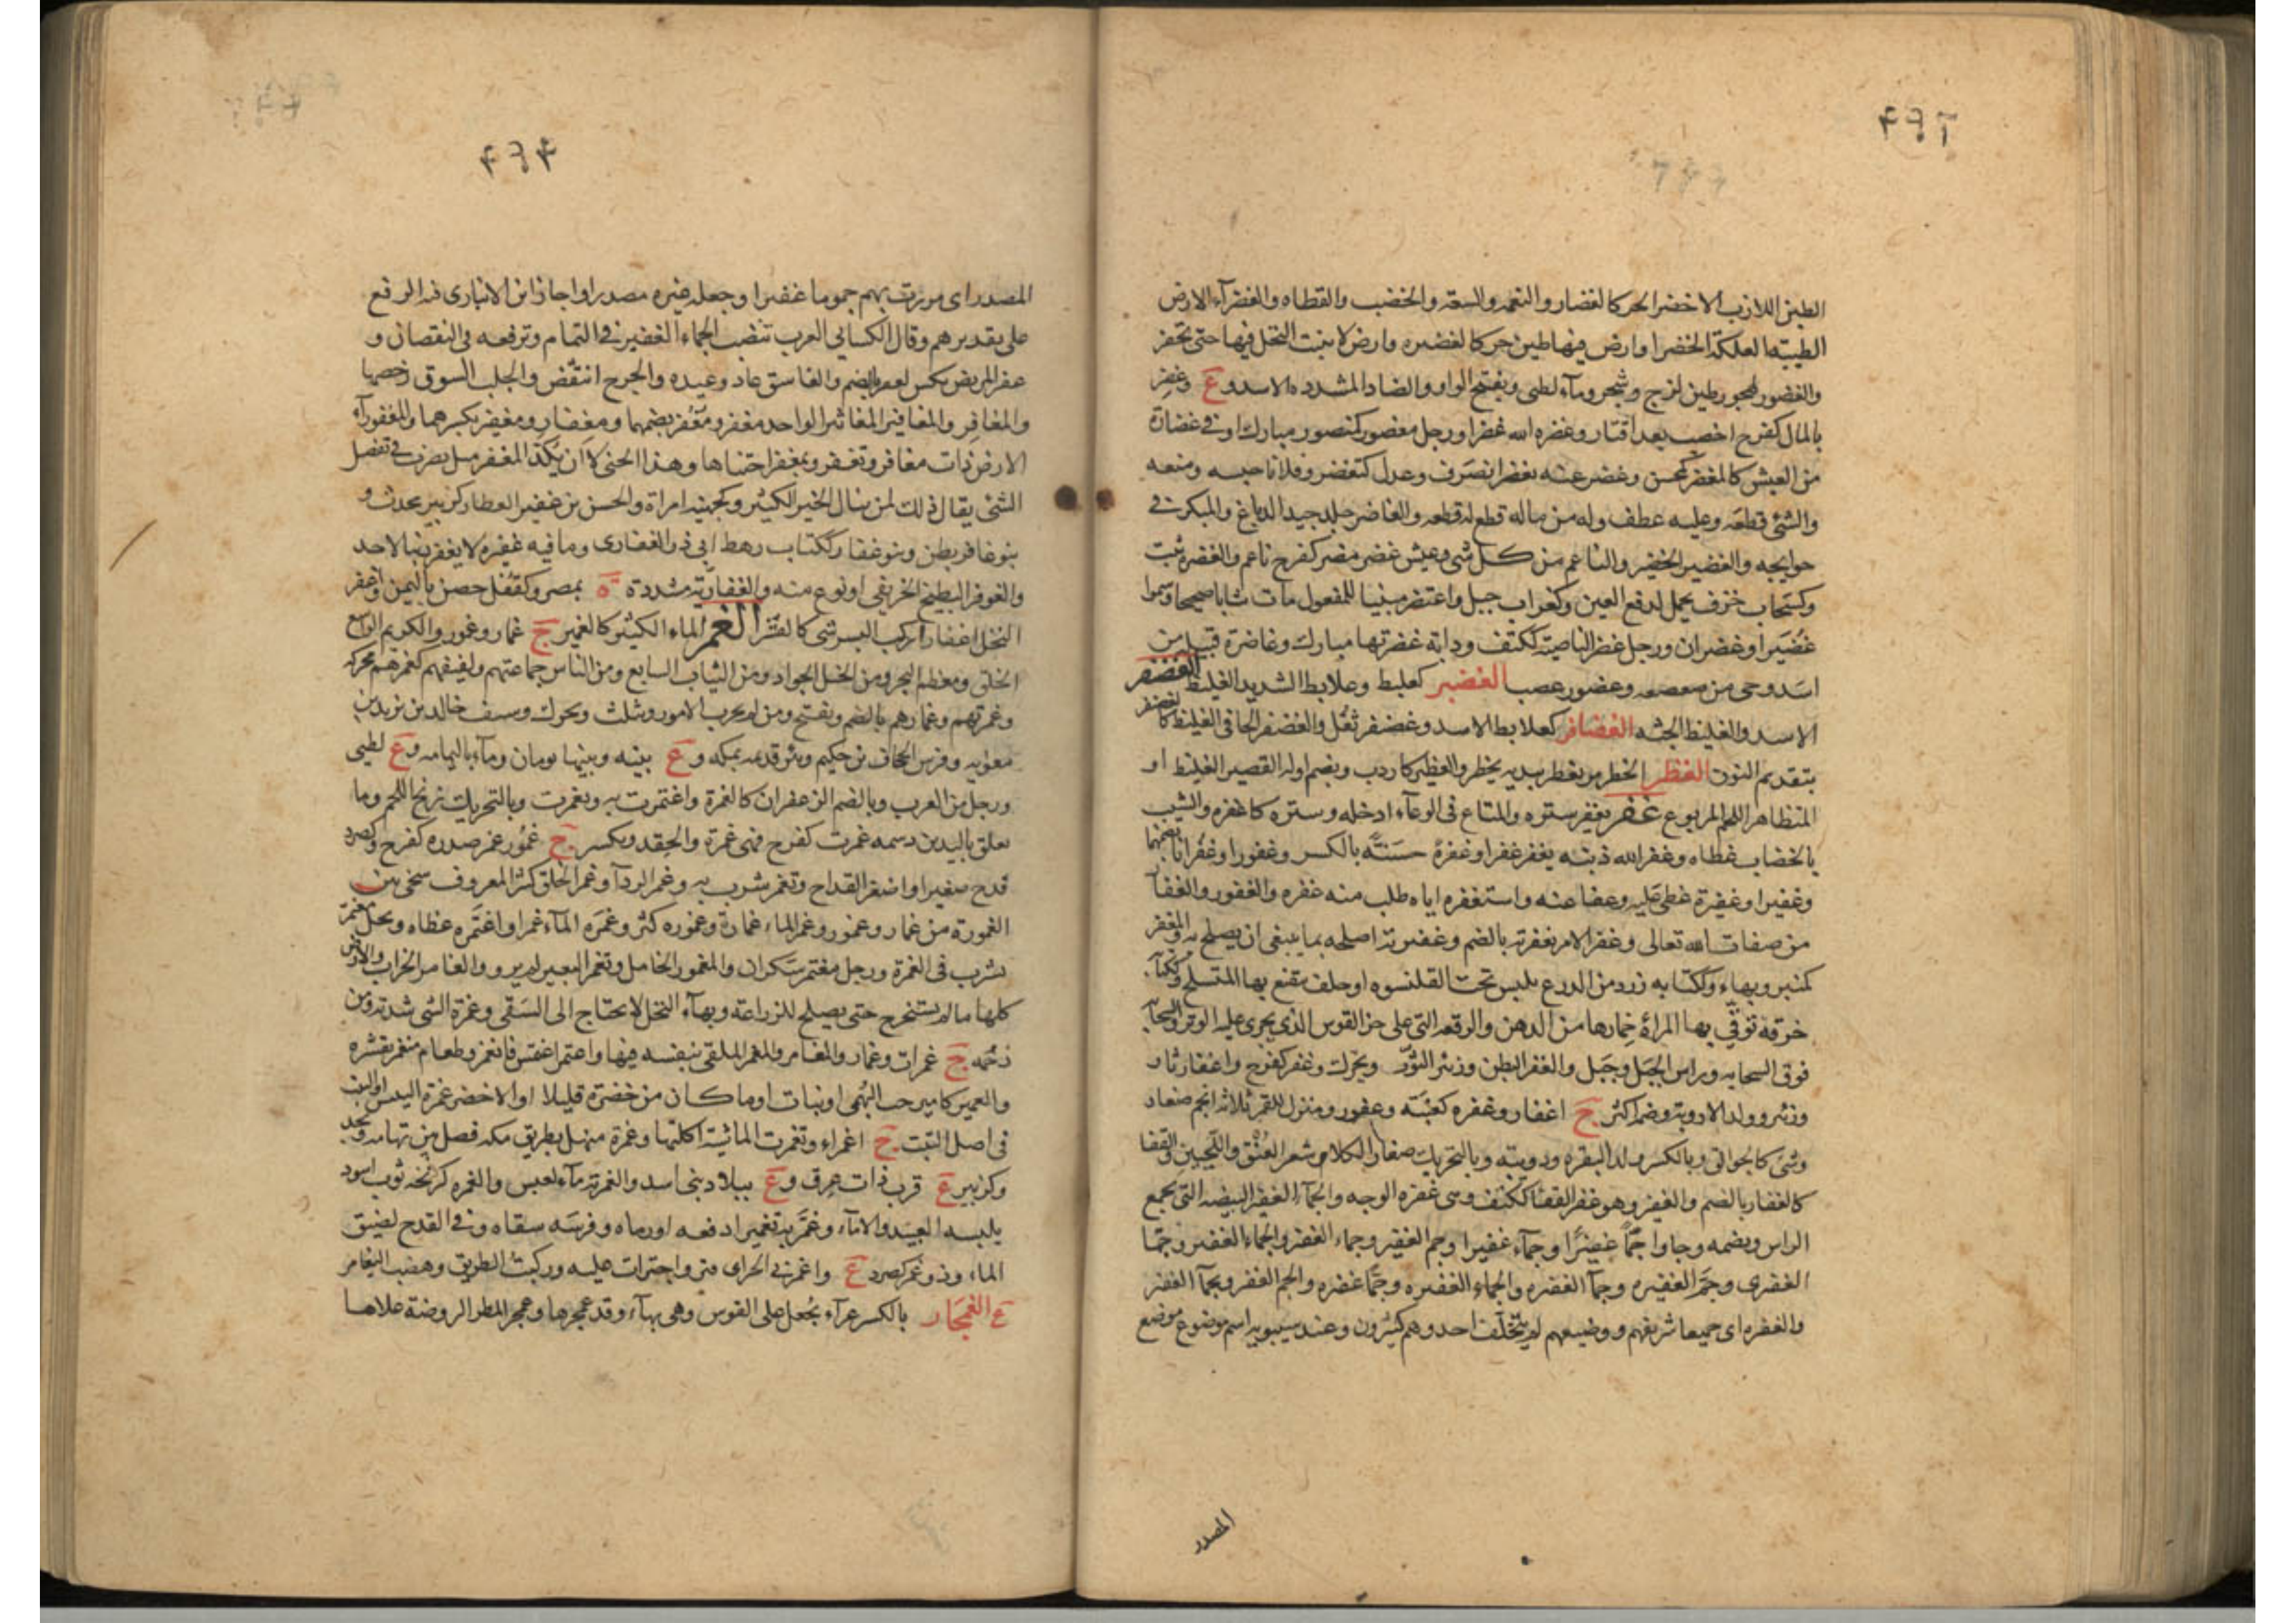 الطين اللازب الاخضر الحر كالغضار والنعمه والسعة والخضب والقطاه والغضرآء الارض
الطيبة العلكة الخضرا وارض فيها طين حر كالغضيره وارض لا ينبت النخل فيها حتى تحفر
والغضور كجهور طين لزج وشجر وماء لطى وبفتح الواو والضاد المشدده الاسد و ع وغضر
بالمال كفرح اخصب بعد اقتار وغضره الله غضرا ورجل مغضور كمنصور مبارك او فى غضارة
من العيش كالمغضر كمحسن وغضر عنه يغضر انصرف وعدل كتغضر وفلانا حبسه ومنعه
والشئ قطعه وعليه عطف وله من ماله قطع له قطعه والغاضر جلد جيد الدباغ والمبكر فى
حوايجه والغضير الخضير والناعم من كل شى وعيش غضر مضر كفرح ناعم والغضره نبت
وكسحاب خزف يحمل لدفع العين وكغراب جبل واعتضر مبنيا للمفعول مات شابا صحيحا وسموا
غضيرا وغضران ورجل غضر الناصية ككتف ودابه غضرتها مبارك وغاضرة قبيله من
اسد وحى من صعصعه وغضور غصب الغضبر كعلبط وعلابط الشديد الغليظ الغضنفر
الاسد والغليظ الجثه الغضافر كعلابط الاسد وغضفر ثقل والغضفر الجافى الغليظ كالغضنفر
بتقديم النون الغطر الخطر مر يغطر بيديه يخطر والغطير كاردب وبضم اوله القصير الغليظ او
المتظاهر اللحم المربوع غفر يغفر ستره والمتاع فى الوعآء ادخله وستره كاغفره والشيب
بالخضاب غطاه وغفر الله ذنبه يغفر غفرا وغفرة حسنة بالكسر وغفورا وغفرانا بضمهما
وغفيرا وغفيرة غطى عليه وعفا عنه واستغفره اياه طلب منه غفره والغفور والغفار
من صفات الله تعالى وغفر الامر بغفرته بالضم وغفيرته اصلحه بما ينبغى ان يصلح به والمغفر
كمنبر وبهاء وككتابه زرد من الدرع يلبس تحت القلنسوه او حلق يتقنع بها المتسلح وككتابه
خرقة توقى بها المراة خمارها من الدهن والرقعه التى على حز القوس الذى يجرى عليه الوتر والسحابه
فوق السحابه وراس الجبل وجبل والغفر البطن وزئبر الثوب ويحرك وغفر كفرح واغفار ثار
وزئبره وولد الاروية وضم اكثر ج اغفار وغفره كعنبة وغفور ومنزل للقمر ثلاثة انجم صغار
وشئ كالجوالق وبالكسر ولد البقره ودويبة وبالتحريك صغار الكلا وشعر العنق واللحيين والقفا
كالغفار بالضم والغفير وهو غفر القفا ككتف وهى غفره الوجه والجمآء الغفير البيضه التى تجمع
الراس وبضمه وجاوا جمّا غفيرًا وجمآء غفيرا وجم الغفير وجماء الغفير والجماء الغفير وجمّا
الغفيرى وجمَّ الغفيره وجمآ الغفيره والجماء الغفيره وجمّا غفره والجم الغفر وبجمآ الغفير
والغفيره اى جميعا شريفهم ووضيعهم لم يتخلف احد وهم كثيرون وعند سيبويه اسم موضوع موضع
المصدر
المصدر اى مررت بهم جموما غفيرا وجعله غيره مصدرا واجاز ابن الانبارى فيه الرفع
على تقديرهم وقال الكسائى العرب تنصب الجماء الغفير فى التمام وترفعه فى النقصان و
غفر المريض نكس كغفر بالضم والعاشق عاد عيده والجرح انتقض والجلب السوق رخصها
والمغافر والمغافير المغاثير الواحد مغفر ومغفر بضمهما ومغفار ومغفير بكسرهما والمغفورآء
الارض ذات مغافر وتغفر وتمغفر اجتناها وهذا الجنى لا ان يكد المغفر مثل يضرب فى تفضل
الشئ يقال ذلك لمن ينال الخير الكثير وكجهينه امراة والحسن بن غفير العطار كزبير محدث و
بنو غافر بطن وبنو غفار ككتاب رهط ابى ذر الغفارى وما فيه غفيره لا يغفر ذنبا لاحد
والغوفر البطيخ الخريفى او نوع منه والغفارية مشددة ة بمصر وكقفل حصن باليمن واغفر
النخل اغفارا ركب البسر شى كالقشر الغمر الماء الكثير كالغمير ج غمار وغمور والكريم الواسع
الخلق ومعظم البحر ومن الخيل الجواد ومن الثياب السابغ ومن الناس جماعتهم ولفيفهم كغمرهم محركه
وغمرتهم وغمارهم بالضم ويفتح ومن لم يجرب الامور ويثلث ويحرك وسيف خالد بن يزيد بن
معويه وفرس الجحاف بن حكيم وبئر قديمه بمكه و ع بينه وبينها يومان وماء باليمامه و ع لطيى
ورجل من العرب وبالضم الزعفران كالغمرة واغتمرت به وتغمرت وبالتحريك زنخ اللحم وما
يعلق باليد من دسمه غمرت كفرح فهى غمرة والحقد ويكسر ج غمور غمر صدره كفرح وكصرد
قدح صغير او اصغر القداح وتغمر شرب به وغمر الردآ وغمر الخلق كثر المعروف سخى بين
الغمورة من غمار وغمور وغمر الماء غمارة وغموره كثر وغمره المآء غمرا واغتمره غطاه ونخل مغتمر
يشرب فى الغمرة ورجل مغتمر سكران والمغمور الخامل وتغمر البعير لم يرو والغامر الخراب والارض
كلها ما لم يستخرج حتى يصلح للزراعة وبهاء النخل لا يحتاج الى السقى وغمرة الشى شدته ومن
زحمه ج غمرات وغمار والمغامر والمغمر الملقى بنفسه فيها واغتمر اغتمس فانغمر وطعام منغمر بقشره
والغمير كامير حب البهمى او نبات او ما كان من خضرة قليلا او الاخضر غمره اليبس او النبت
فى اصل النبت ج اغمراء وتغمرت الماشية اكلتها وغمرة منهل بطريق مكه فصل بين تهامه ونجد
وكزبير ع قرب ذات عرق و ع ببلاد بنى اسد والغمرة مآء لعبس والغمره كزنخه ثوب اسود
يلبسه العبيد والامآء وغمر به تغميرا دفعه او رماه وفرسه سقاه فى القدح لضيق
الماء وذو غمر كصرد ع واغمرنى الحر اى فتر واجترات عليه وركبت الطريق وهضب اليغامر
ع الغمجار بالكسر غرآء يجعل على القوس وهى بهآء وقد غمجرها وغمجر المطر الروضة علاها